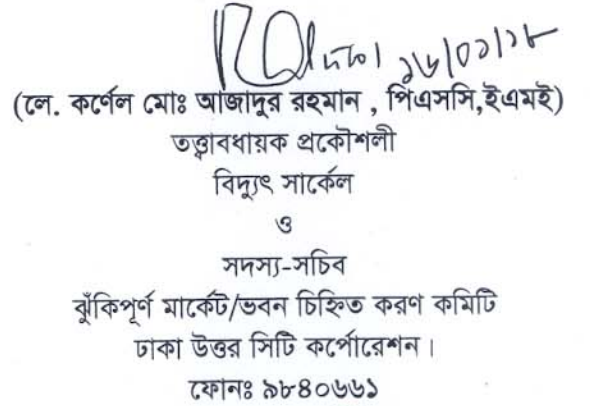 ১৬/০১/১৮
(লে. কর্ণেল মোঃ আজাদুর রহমান , পিএসসি,ইএমই)
তত্ত্বাবধায়ক প্রকৌশলী
বিদ্যুৎ সার্কেল
ও
সদস্য-সচিব
ঝুঁকিপূর্ণ মার্কেট/ভবন চিহ্নিত করণ কমিটি
ঢাকা উত্তর সিটি কর্পোরেশন।
ফোনঃ ৯৮৪০৬৬১